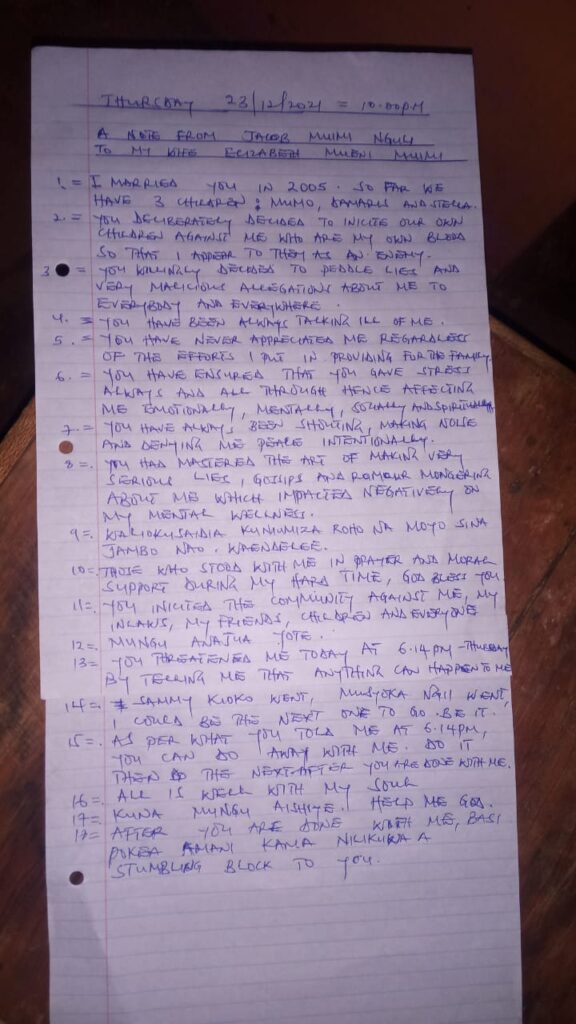 THURSDAY 23/12/2021 = 10.00PM
A NOTE FROM JACOB MUIMI NGULI
TO MY WIFE ELIZABETH MUENI MUIMI
1. = I MARRIED YOU IN 2005. SO FAR WE
HAVE 3 CHILDREN : MUMO, DAMARIS AND STELLA.
2. = YOU DELIBERATELY DECIDED TO INICITE OUR OWN
CHILDREN AGAINST ME WHO ARE MY OWN BLOOD
SO THAT I APPEAR TO THEY AS AN ENEMY.
3 = YOU WILLINGLY DECIDED TO PEDDLE LIES AND
VERY MALICIOUS ALLEGATIONS ABOUT ME TO
EVERYBODY AND EVERYWHERE.
4. = YOU HAVE BEEN ALWAYS TALKING ILL OF ME.
5. = YOU HAVE NEVER APPRECIATED ME REGARDLESS
OF THE EFFORTS I PUT IN PROVIDING FOR THE FAMILY.
6. = YOU HAVE ENSURED THAT YOU GAVE STRESS
ALWAYS AND ALL THROUGH HENCE AFFECTING
ME EMOTIONALLY, MENTALLY, SOCIALLY AND SPIRITUALLY
7. = YOU HAVE ALWAYS BEEN SHOUTING, MAKING NOISE
AND DENYING ME PEACE INTENTIONALLY.
8 =. YOU HAD MASTERED THE ART OF MAKING VERY
SERIOUS LIES, GOSSIPS AND RUMOUR MONGERING
ABOUT ME WHICH IMPACTED NEGATIVELY ON
MY MENTAL WELLNESS.
9 =. WALIOKUSAIDIA KUNIUMIZA ROHO NA MOYO SINA
JAMBO NAO. WAENDELEE.
10 =. THOSE WHO STOOD WITH ME IN PRAYER AND MORAL
SUPPORT DURING MY HARD TIME, GOD BLESS YOU.
11 =. YOU INICITED THE COMMUNITY AGAINST ME, MY
INLAWS, MY FRIENDS, CHILDREN AND EVERYONE
12 =. MUNGU ANAJUA YOTE.
13 =. YOU THREATENED ME TODAY AT 6.14PM - THURSDAY
BY TELLING ME THAT ANYTHING CAN HAPPEN TO ME
14 =. SAMMY KIOKO WENT, MUSYOKA NGII WENT,
I COULD BE THE NEXT ONE TO GO. BE IT.
15 =. AS PER WHAT YOU TOLD ME AT 6.14PM,
YOU CAN DO AWAY WITH ME. DO IT
THEN DO THE NEXT AFTER YOU ARE DONE WITH ME.
16 =. ALL IS WELL WITH MY SOUL
17 =. KUNA MUNGU AISHIYE. HELP ME GOD.
18 =. AFTER YOU ARE DONE WITH ME, BASI
POKEA AMANI KAMA NILIKUWA A
STUMBLING BLOCK TO YOU.